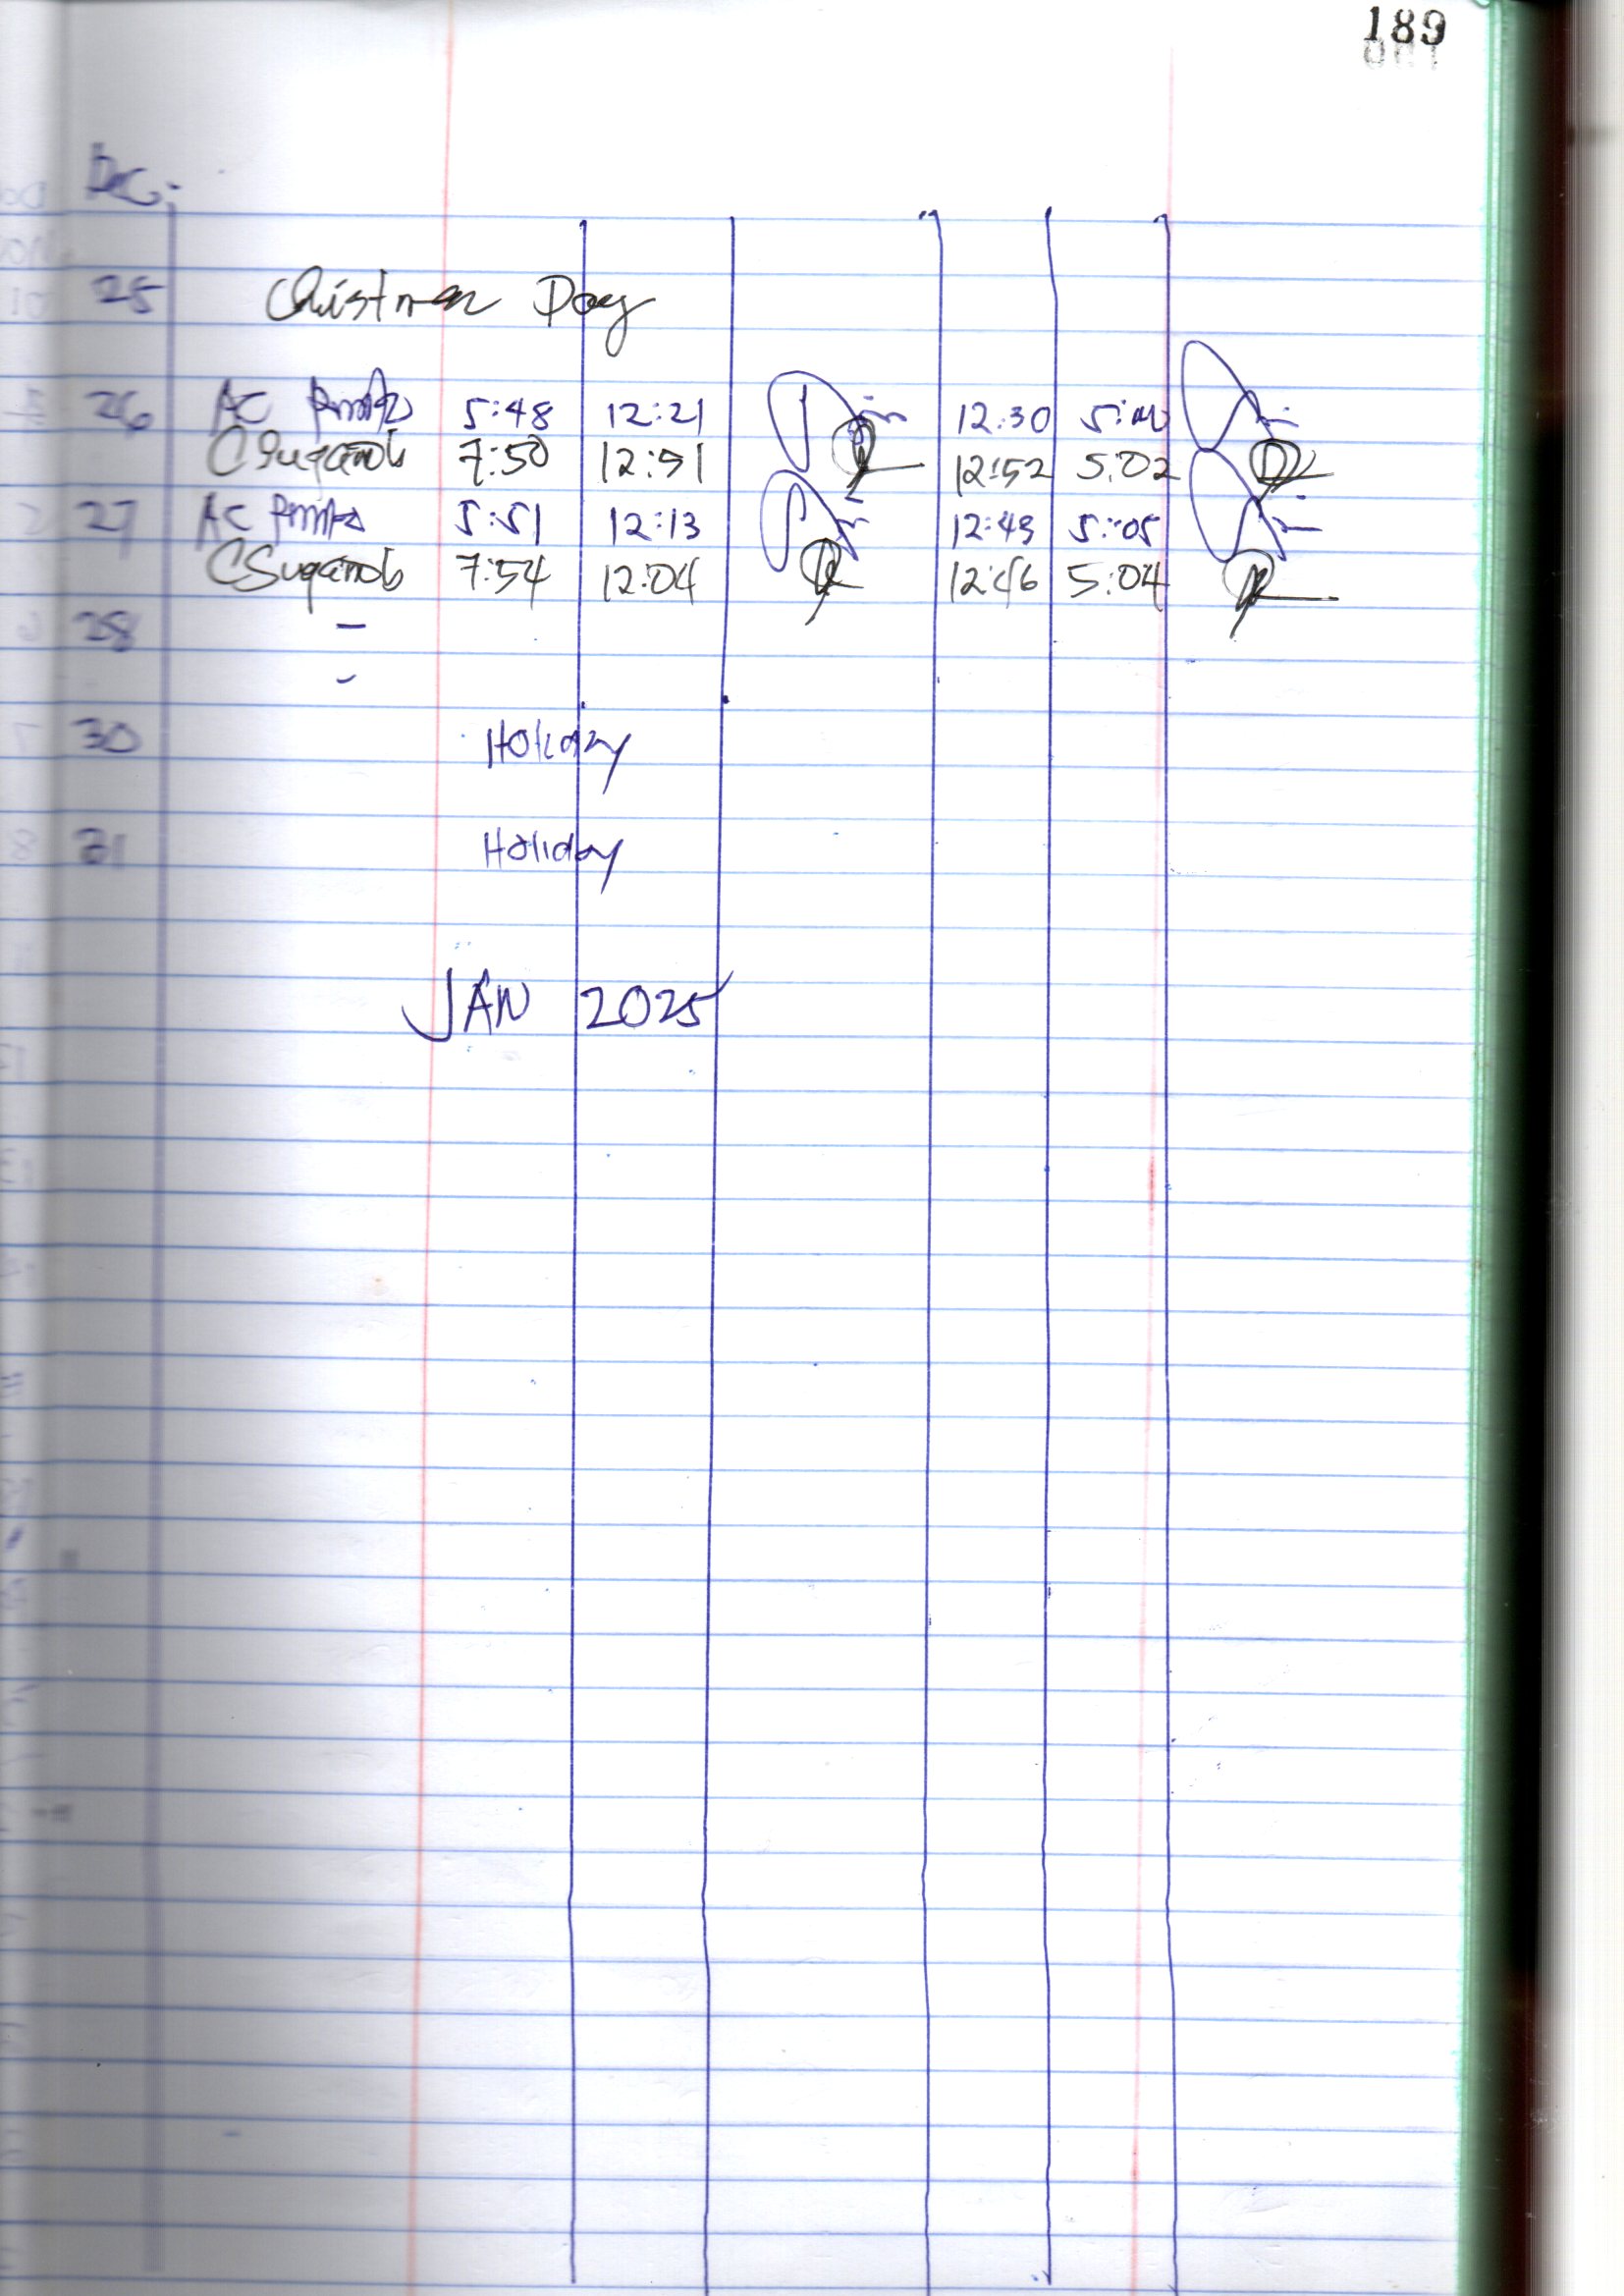 189
Dec.
25 Christmas Day
26 AC 5:48 12:21 12:30 5:00
CSuganob 7:50 12:51 12:52 5:02
27 AC 5:51 12:13 12:49 5:05
CSuganob 7:54 12:04 12:46 5:04
28 -
-
30 Holiday
31 Holiday
JAN 2025